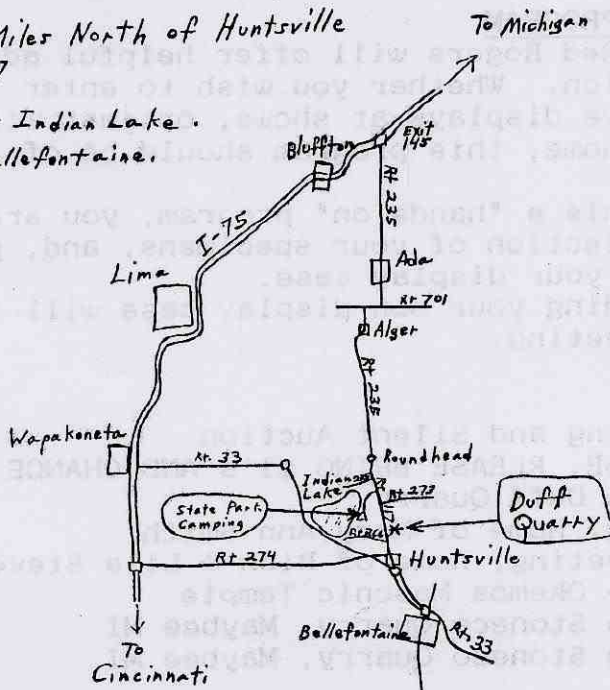 Miles North of Huntsville
To Michigan
Indian Lake.
Bellefontaine.
Bluffton
Exit
145
I 75
Rt 235
Lima
Ada
Rt 701
Alger
Rt 235
Wapakoneta
Rt. 33
Roundhead
Indian
Lake
Rt 273
State Park
Camping
Duff
Quarry
Rt 274
Huntsville
Bellefontaine
Rt. 33
To
Cincinnati